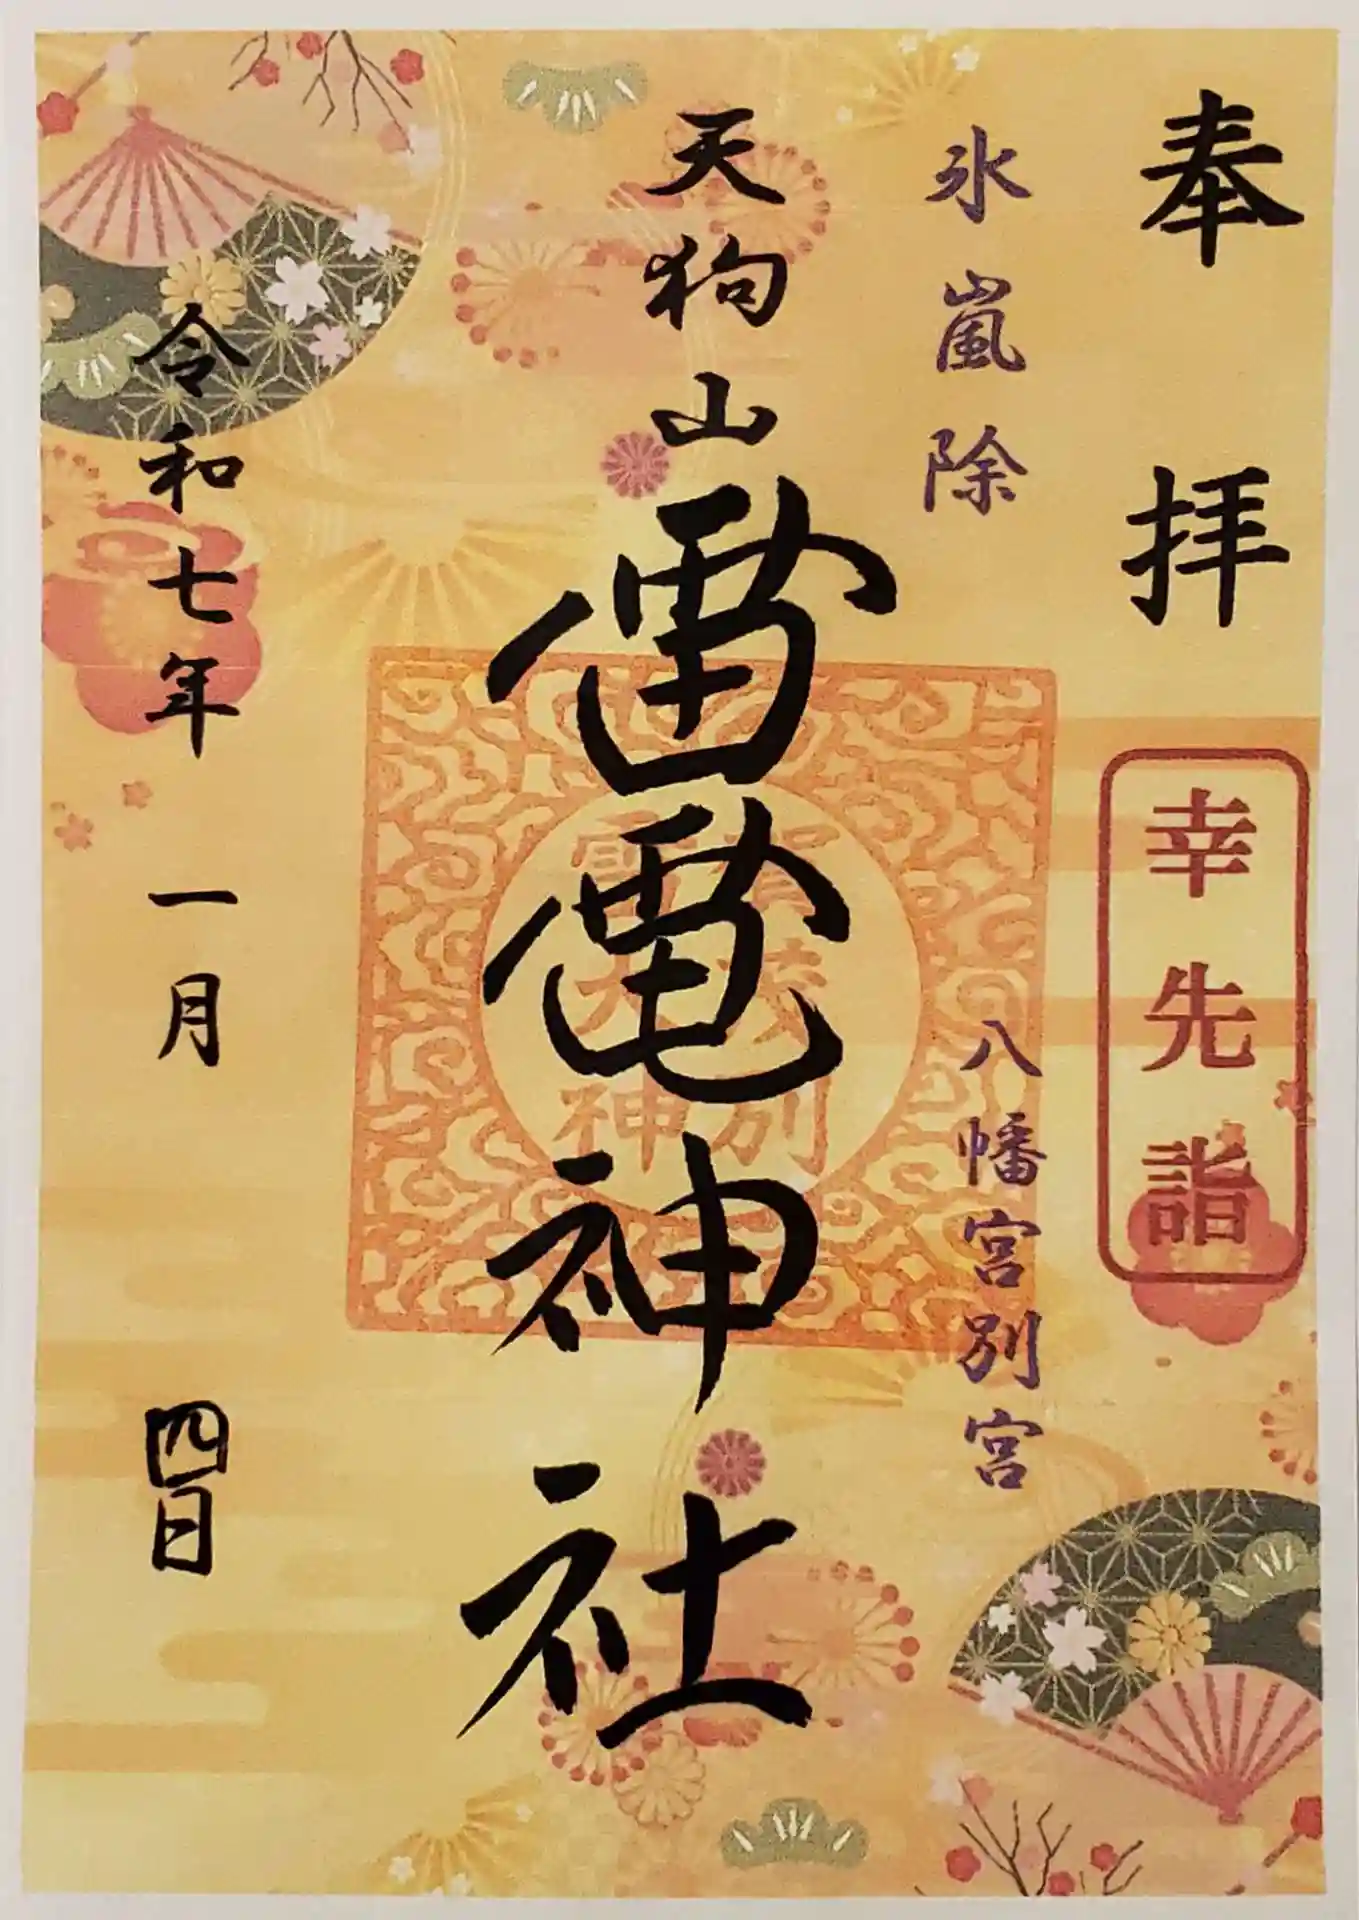 奉拝
幸先詣
氷嵐除
八幡宮別宮
天狗山
雷電神社
令和七年一月四日